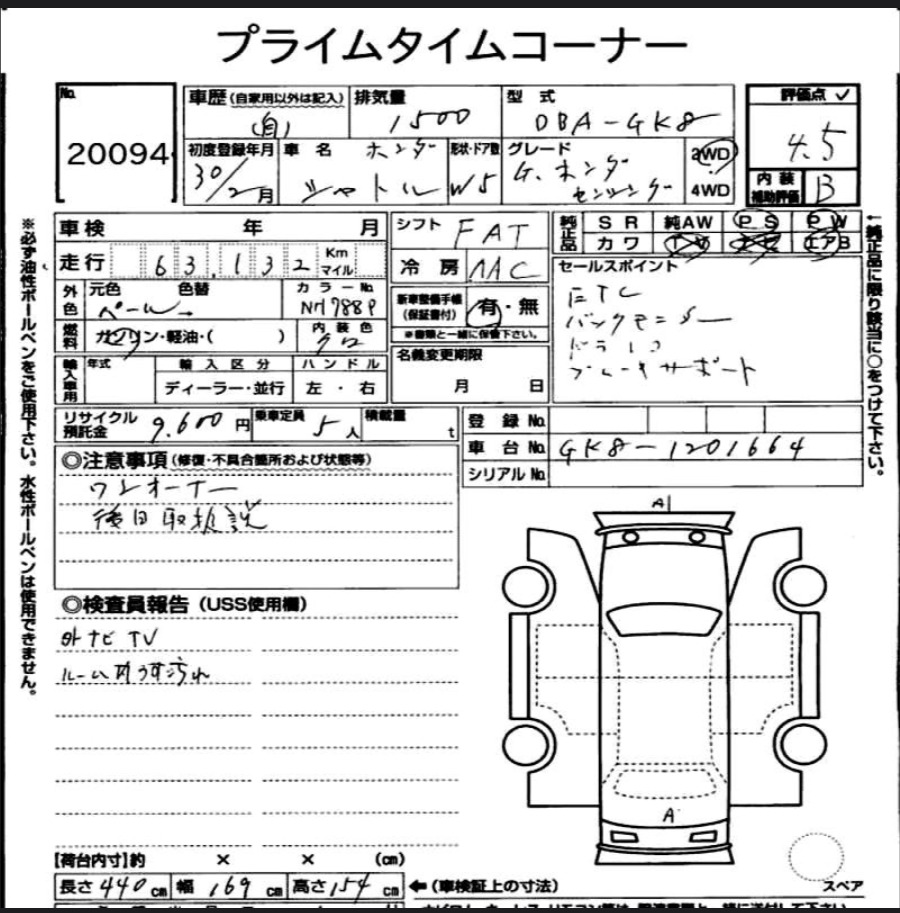 プライムタイムコーナー
No. 20094
車歴(自家用以外は記入) (自)
排気量 1500
型式 DBA-GK8
評価点 ✓ 4.5
初度登録年月 30/2月
車名 ホンダ シャトル
形状・ドア数 W5
グレード G.ホンダ センシング
2WD
4WD
内装補助評価 B
※必ず油性ボールペンをご使用下さい。水性ボールペンは使用できません。
車検 年 月
シフト FAT
純正品 SR 純AW PS PW
カワ TV ナビ エアB
←純正品に限り該当に○をつけて下さい。
走行 63,132 Km マイル
冷房 AAC
セールスポイント
ETC
バックモニター
ドラレコ
ブレーキサポート
外色 元色 色替 パール
カラーNo. NH788P
新車整備手帳(保証書付) 有・無
※書類と一緒に保管下さい。
燃料 ガソリン・軽油・( )
内装色 クロ
名義変更期限 月 日
輸入車用 年式
輸入区分 ディーラー・並行
ハンドル 左・右
リサイクル預託金 9,600円
乗車定員 5人
積載量 t
登録No.
車台No. GK8-1201664
シリアルNo.
◎注意事項(修復・不具合箇所および状態等)
ワンオーナー
後日取扱説
◎検査員報告(USS使用欄)
外ナビTV
ルーム内うす汚れ
A
A
【荷台内寸】約 × × (cm)
長さ 440cm 幅 169cm 高さ 154cm
←(車検証上の寸法)
スペア